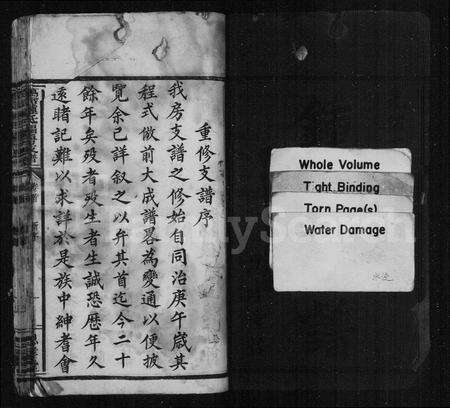 重修支譜序
我房支譜之修始自同治庚午歲其
程式倣前大成譜畧為變通以便披
覽余已詳叙之以弁其首迄今二十
餘年矣殁者殁生者生誠恐歷年久
遠賭記難以求詳於是族中紳耆會
Whole Volume
Tight Binding
Torn Page(s)
Water Damage
FamilySearch